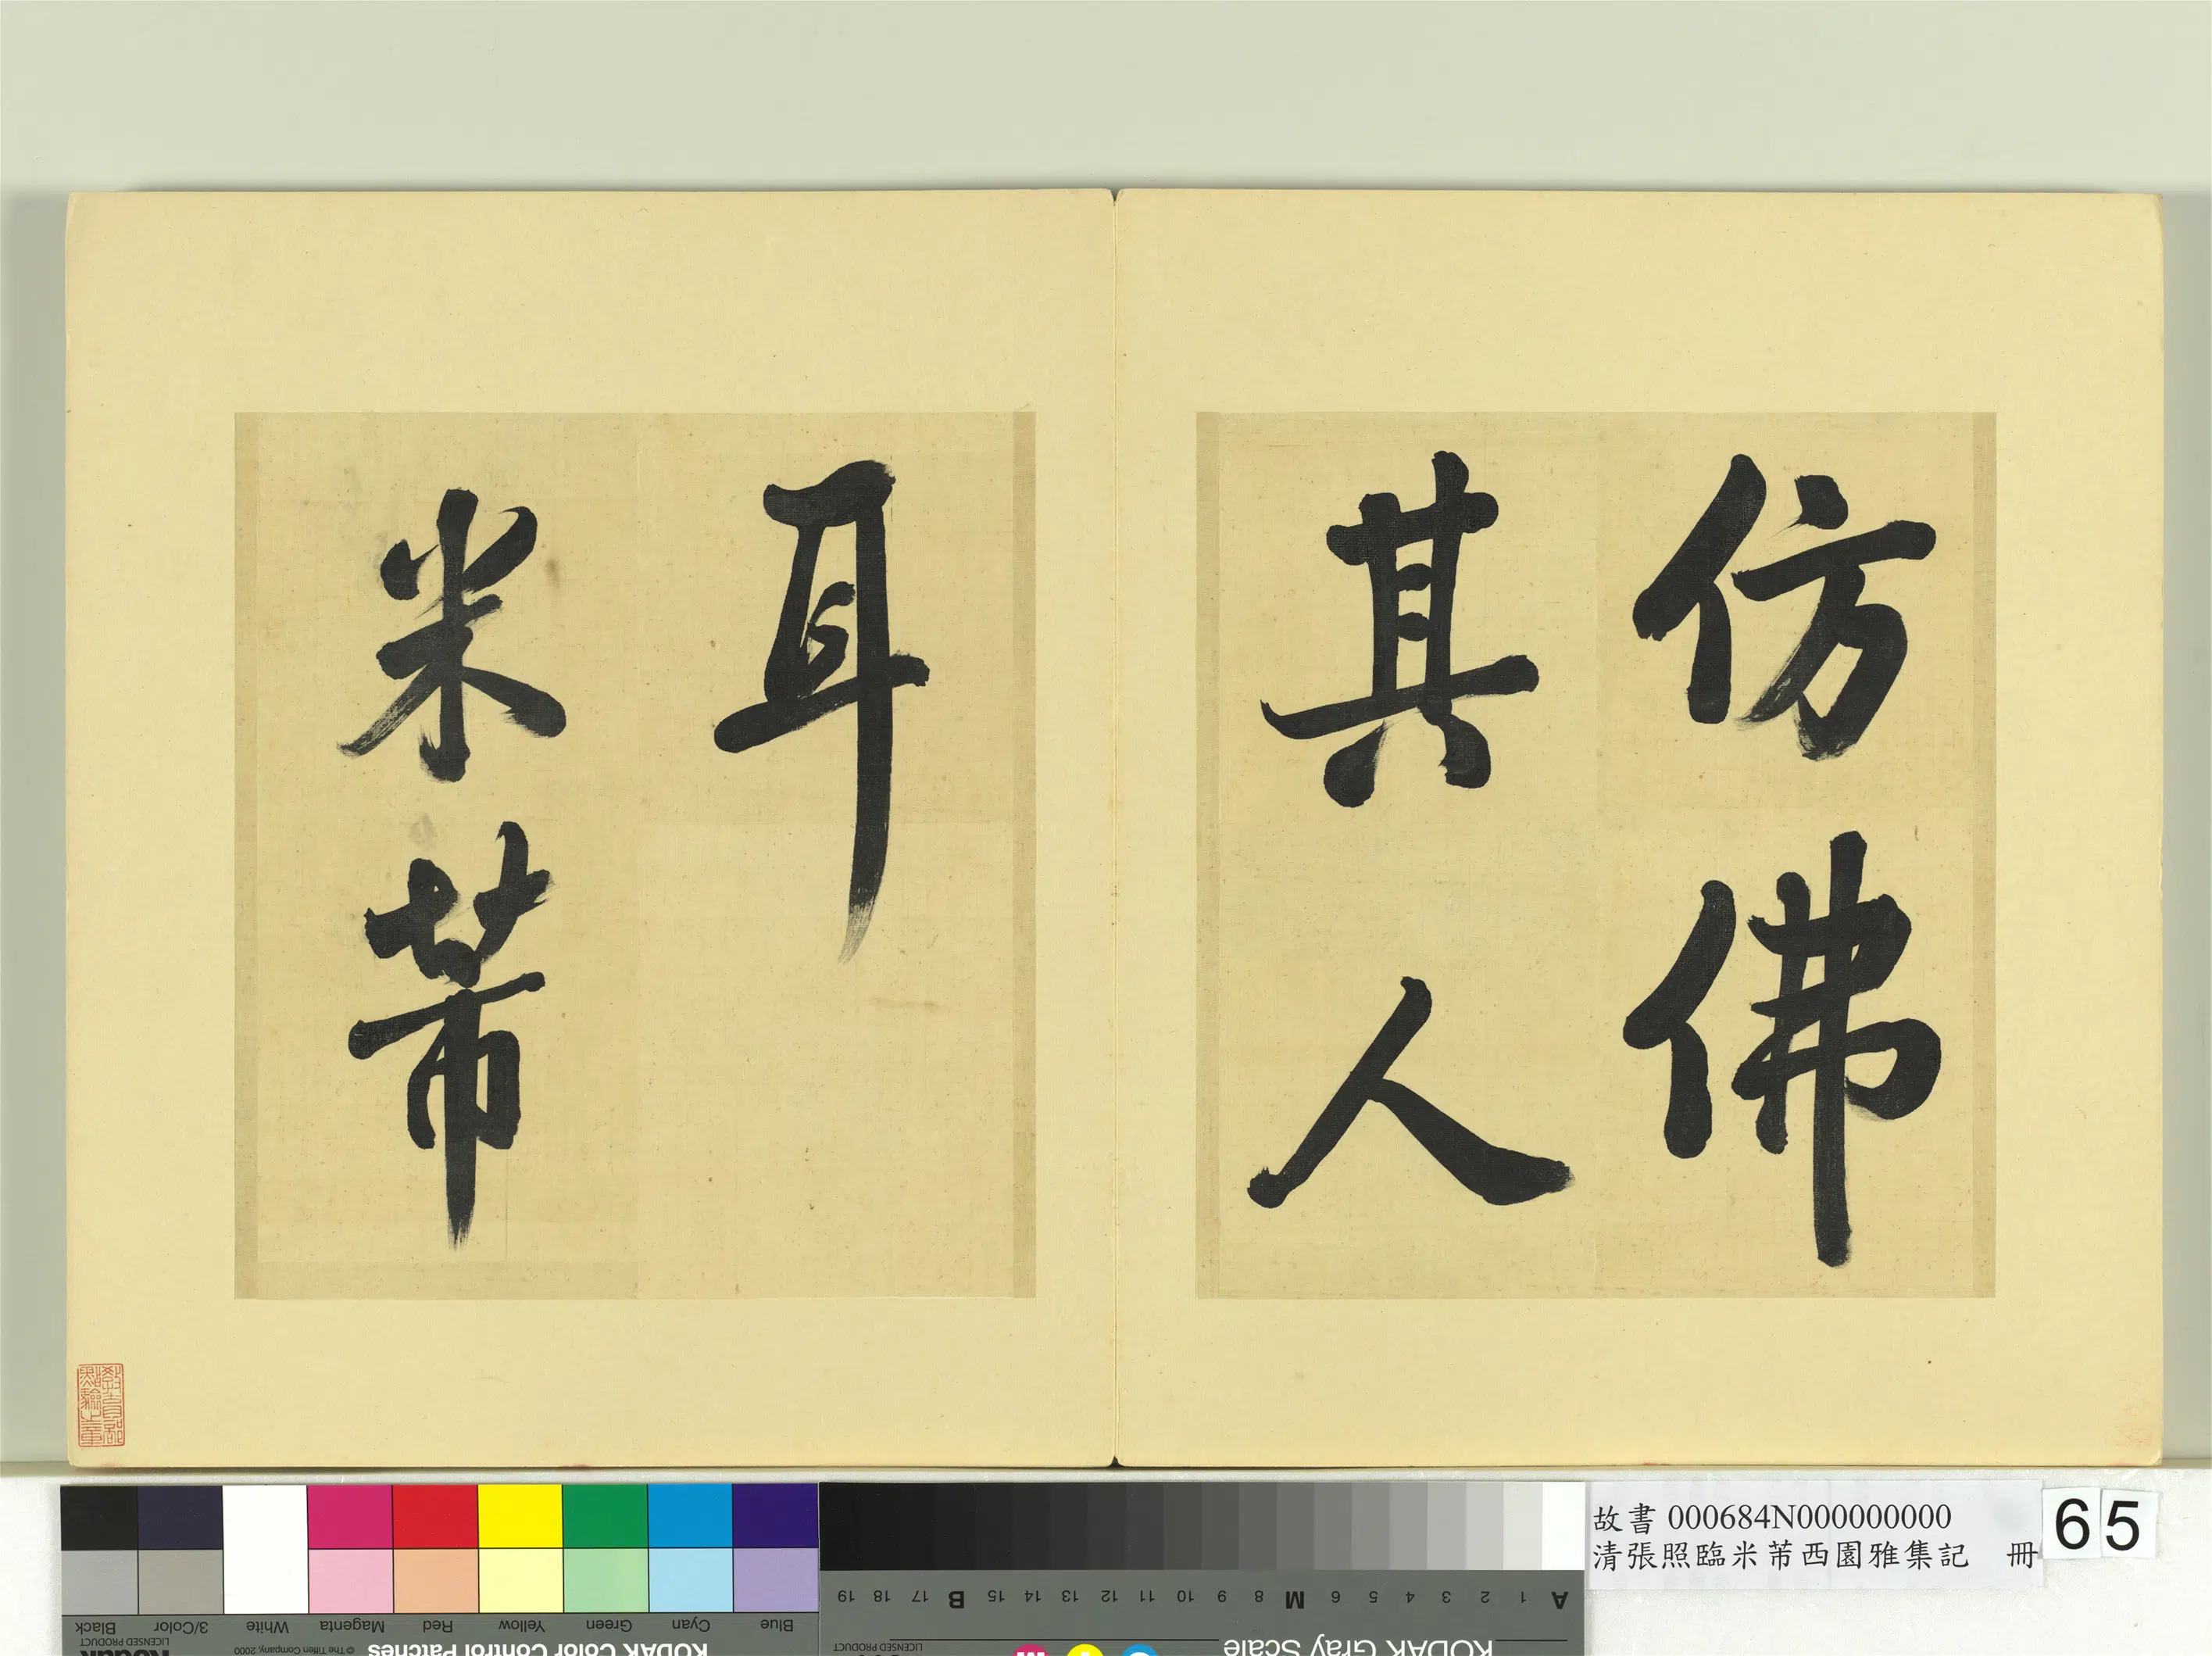 仿佛
其人
耳
米芾
教育部
點驗之章
故書 000684N000000000
清張照臨米芾西園雅集記 冊
65
Black
3/Color
White
Magenta
Red
Yellow
Green
Cyan
Blue
Kodak
LICENSED PRODUCT
© The Tiffen Company, 2000
KODAK Color Control Patches
A 1 2 3 4 5 6 M 8 9 10 11 12 13 14 15 B 17 18 19
KODAK Gray Scale
LICENSED PRODUCT